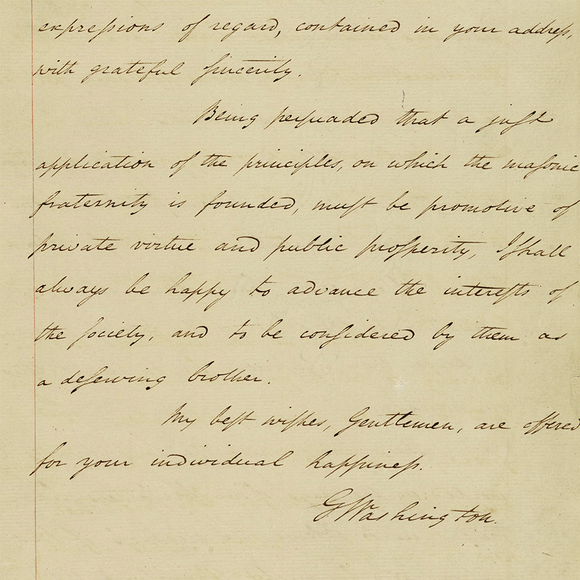 expressions of regard, contained in your address,
with grateful sincerity.
Being persuaded that a just
application of the principles, on which the masonic
fraternity is founded, must be promotive of
private virtue and public prosperity, I shall
always be happy to advance the interests of
the society, and to be considered by them as
a deserving brother.
My best wishes, Gentlemen, are offered
for your individual happiness.
GWashington.